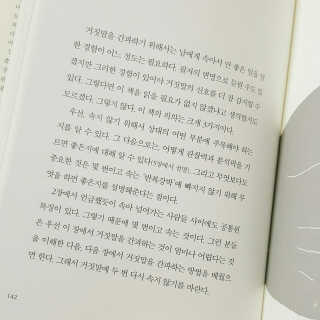 거짓말을 간파하기 위해서는 남에게 속아서 안 좋은 일을 당
한 경험이 어느 정도는 필요하다.
겠지만 그러한 경험이 있어야 거짓말의 신호를 더 잘 감지할 수
있다. 그렇다면 이 책을 읽을 필요가 없지 않겠냐고 생각할지도
모르겠다. 그렇지 않다. 이 책의 의의는 크게 3가지이다.
우선, 속지 않기 위해서 상대의 어떤 부분에 주목해야 하는
지를 알 수 있다. 그 다음으로는, 어떻게 관찰력과 분석력을 기
르면 좋은지에 대해 알 수 있다 그리고 무엇보다도
중요한 것은 몇 번이고 속는 '반복강박'에 빠지지 않기 위해 무
엇을 하면 좋은지를 설명해준다는 점이다.
2장에서 언급했듯이 속아 넘어가는 사람들 사이에도 공통된
특징이 있다. 그렇기 때문에 몇 번이고 속는 것이다. 그런 분들
은 우선 이 장에서 거짓말을 간파하는 것이 얼마나 어렵다는 것
을 이해한 다음, 다음 장에서 거짓말을 간파하는 방법을 배웠으
면 한다. 그래서 거짓말에 두 번 다시 속지 않기를 바란다.
142